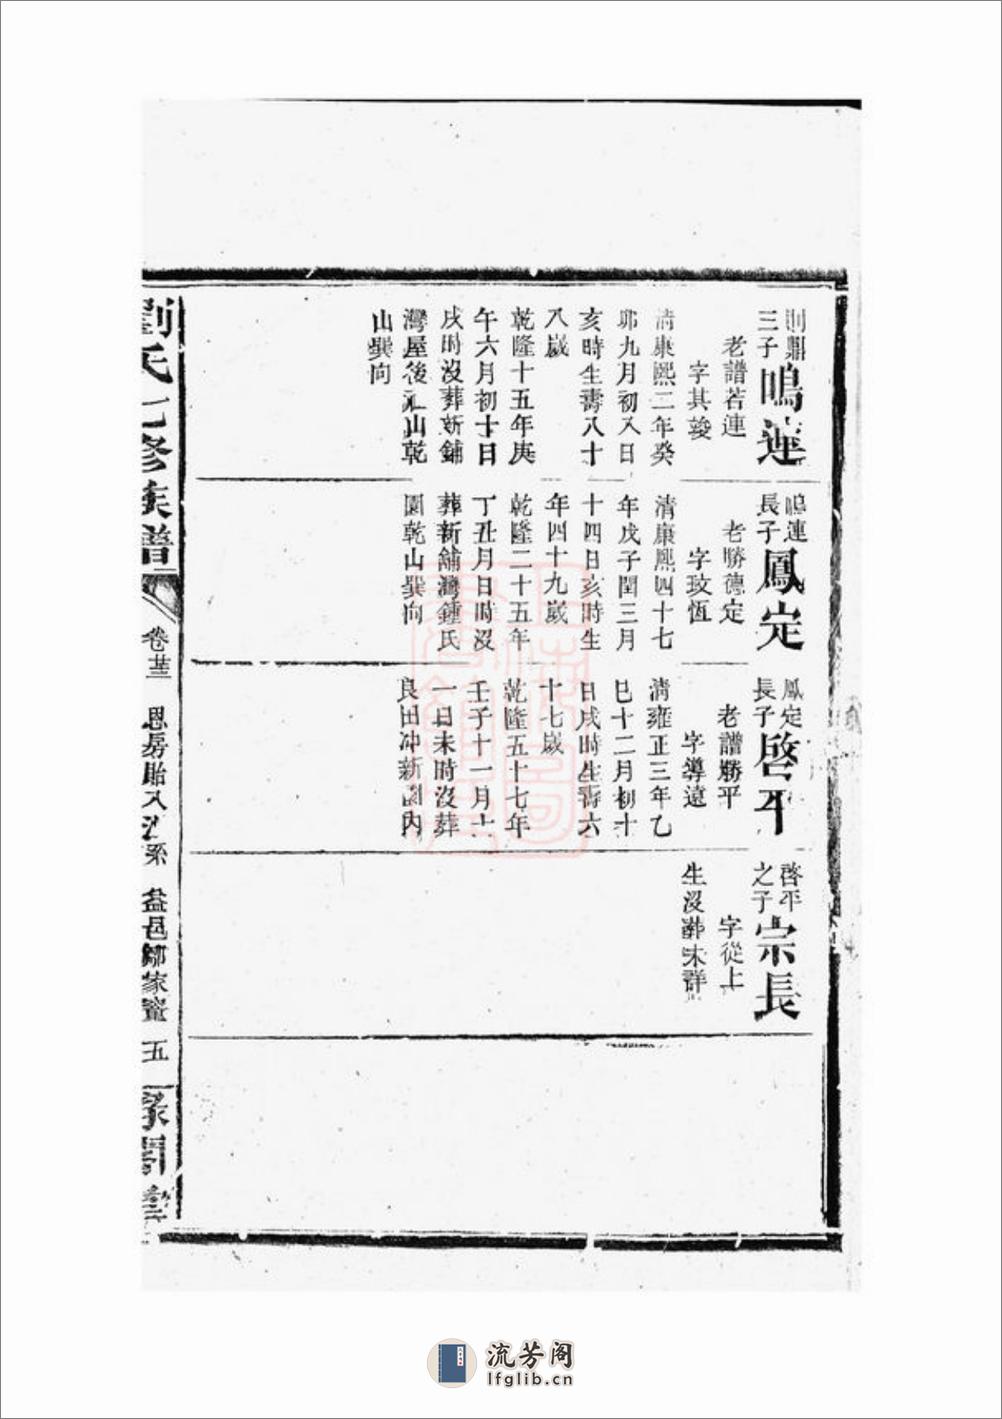 鼎
三子
鳴蓮
老譜若連
字其竣
清康熙二年癸
卯九月初又日
亥時生壽八十
八歲
乾隆十五年庚
午六月初十日
戌時沒葬新鋪
灣屋後山乾
山巽向
鳴連
長子
鳳定
老勝德定
字玟恆
清康熙四十七
年戊子閏三月
十四日亥時生
年四十九歲
乾隆二十五年
丁丑月日時沒
葬新舖灣鍾氏
園乾山巽向
鳳定
長子
啓平
老譜勝平
字導遠
清雍正三年乙
巳十二月初十
日戌時生壽六
十七歲
乾隆五十七年
壬子十一月十
一日未時沒葬
良田冲新園內
啓平
之子
宗長
字從上
生沒葬未詳
劉氏七修族譜
卷廿三
思房貽
益邑鄒家
五
閣
流芳阁
lfglib.cn